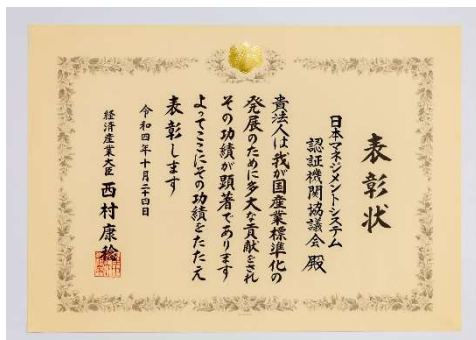 表彰状
日本マネジメントシステム
認証機関協議会 殿
貴法人は我が国産業標準化の
発展のために多大な貢献をされ
その功績が顕著であります
よってここにその功績をたたえ
表彰します
令和四年十月二十四日
経済産業大臣 西村康稔